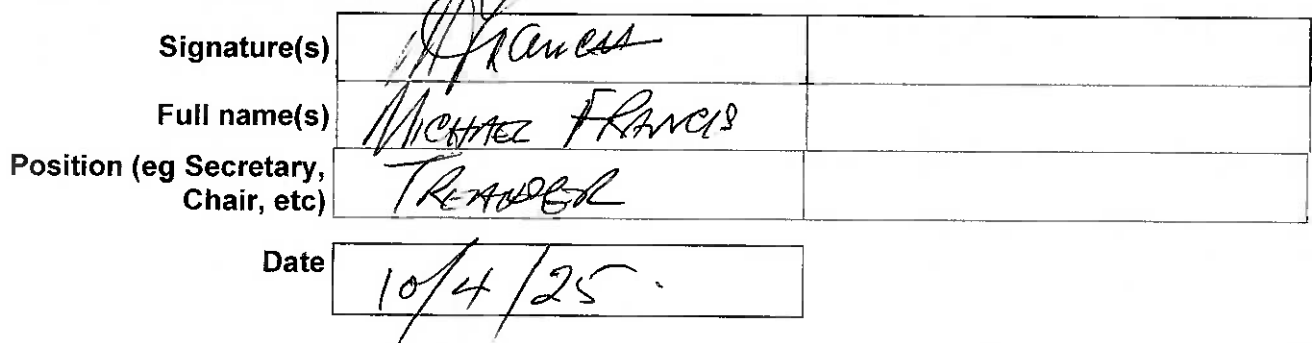 Signature(s) MFrancis
Full name(s) MICHAEL FRANCIS
Position (eg Secretary,
Chair, etc) TREASURER
Date 10/4/25.